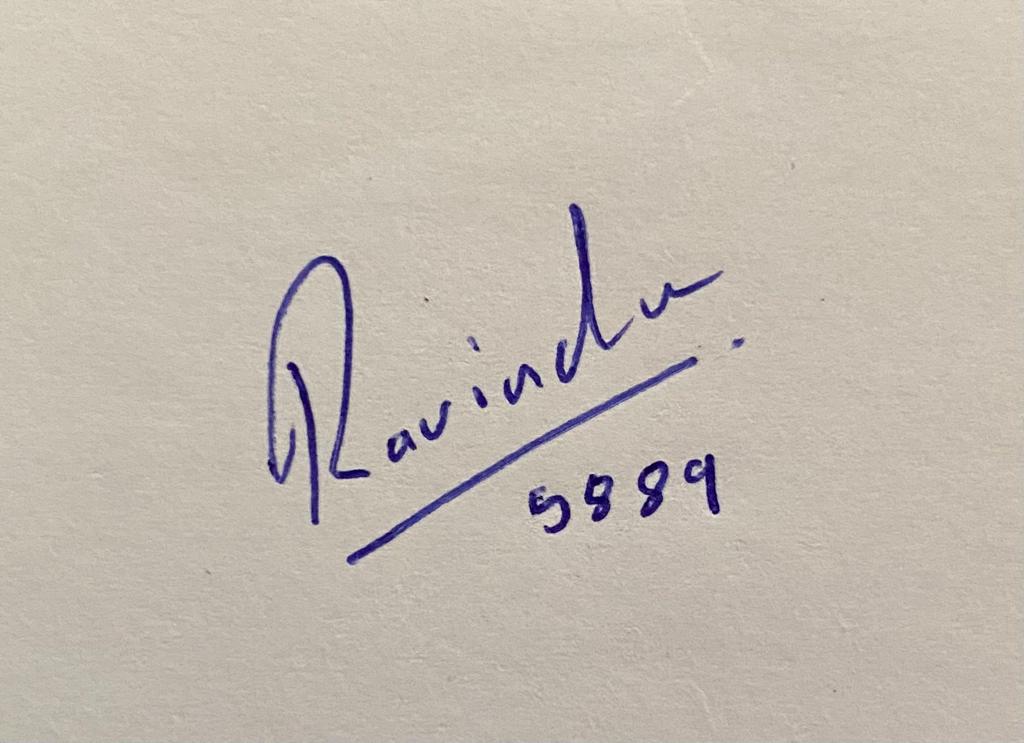 Ravindu
5889